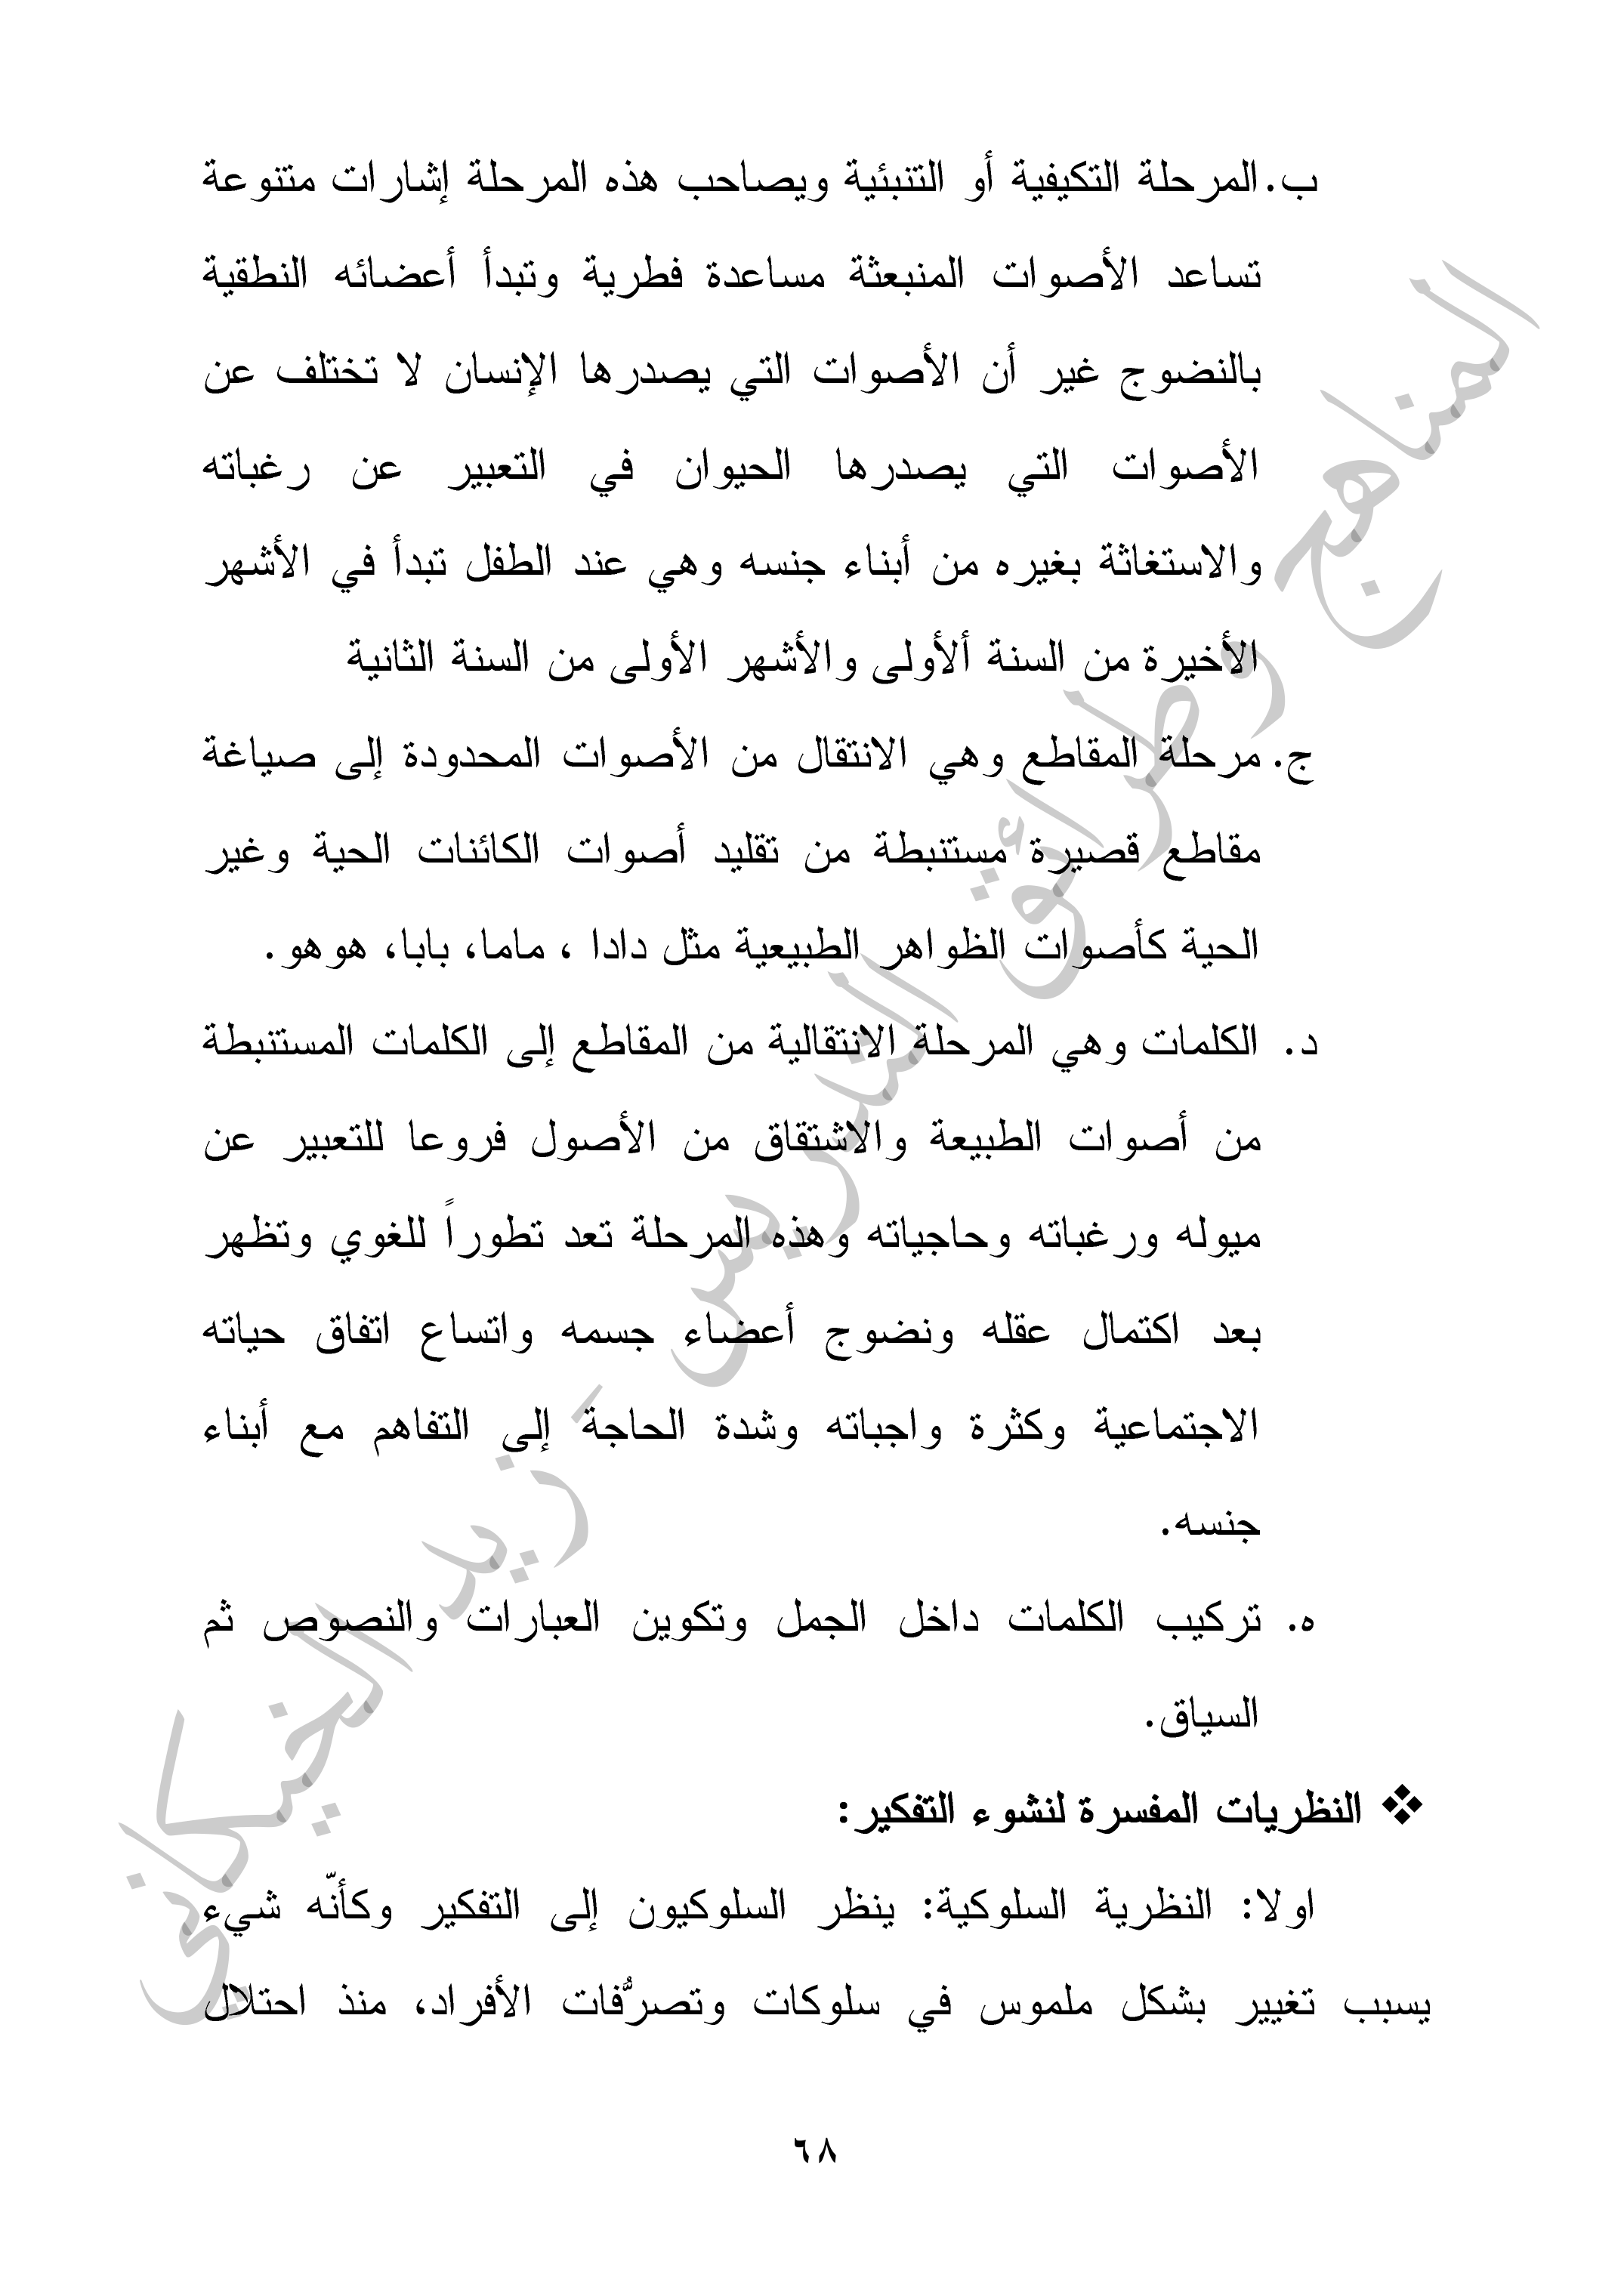 ب. المرحلة التكيفية أو التنبئية ويصاحب هذه المرحلة إشارات متنوعة
تساعد الأصوات المنبعثة مساعدة فطرية وتبدأ أعضائه النطقية
بالنضوج غير أن الأصوات التي يصدرها الإنسان لا تختلف عن
الأصوات التي يصدرها الحيوان في التعبير عن رغباته
والاستغاثة بغيره من أبناء جنسه وهي عند الطفل تبدأ في الأشهر
الأخيرة من السنة ألأولى والأشهر الأولى من السنة الثانية
ج. مرحلة المقاطع وهي الانتقال من الأصوات المحدودة إلى صياغة
مقاطع قصيرة مستنبطة من تقليد أصوات الكائنات الحية وغير
الحية كأصوات الظواهر الطبيعية مثل دادا ، ماما، بابا، هوهو.
د. الكلمات وهي المرحلة الانتقالية من المقاطع إلى الكلمات المستنبطة
من أصوات الطبيعة والاشتقاق من الأصول فروعا للتعبير عن
ميوله ورغباته وحاجياته وهذه المرحلة تعد تطوراً للغوي وتظهر
بعد اكتمال عقله ونضوج أعضاء جسمه واتساع اتفاق حياته
الاجتماعية وكثرة واجباته وشدة الحاجة إلى التفاهم مع أبناء
جنسه.
ه. تركيب الكلمات داخل الجمل وتكوين العبارات والنصوص ثم
السياق.
❖ النظريات المفسرة لنشوء التفكير:
اولا: النظرية السلوكية: ينظر السلوكيون إلى التفكير وكأنّه شيء
يسبب تغيير بشكل ملموس في سلوكات وتصرُّفات الأفراد، منذ احتلال
٦٨
المناهج وطرائق التدريس - زيد الخيكاني